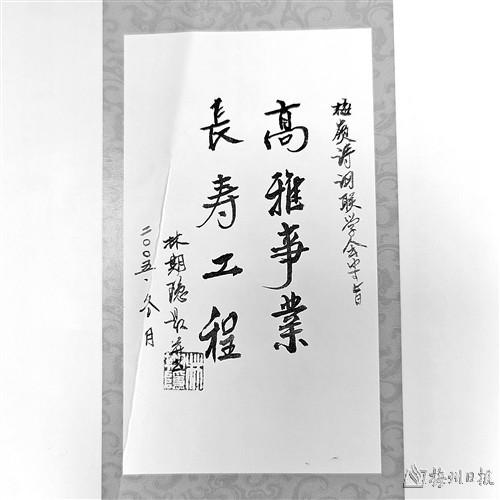 梅岭诗词联学会宗旨
高雅事業
長寿工程
林期隐题并书
二〇〇五·冬月
梅州日报